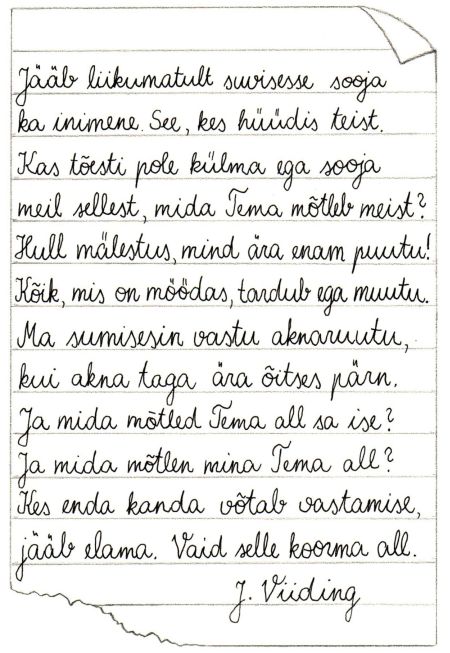 Jääb liikumatult suvisesse sooja
ka inimene. See, kes hüüdis teist.
Kas tõesti pole külma ega sooja
meil sellest, mida Tema mõtleb meist?
Hull mälestus, mind ära enam puutu!
Kõik, mis on möödas, tardub ega muutu.
Ma sumisesin vastu aknaruutu,
kui akna taga ära õitses pärn.
Ja mida mõtled Tema all sa ise?
Ja mida mõtlen mina Tema all?
Kes enda kanda võtab vastamise,
jääb elama. Vaid selle koorma all.
J. Viiding